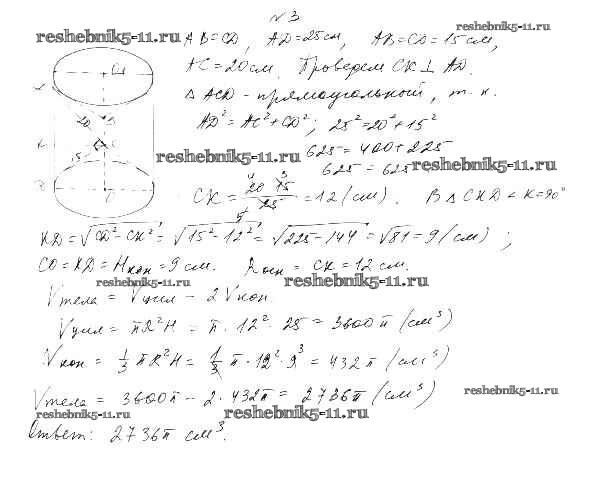 №3
reshebnik5-11.ru AB=CD, AD=25см, AB=CD=15см, reshebnik5-11.ru
AC=20см. Проведем CK⊥AD.
△ACD-прямоугольный, т.к.
AD²=AC²+CD²; 25²=20²+15²
reshebnik5-11.ru 625=400+225 reshebnik5-11.ru
625=625
CK = 20·15/25 = 12(см). В △CKD ∠K=90°
KD=√CD²-CK²=√15²-12²=√225-144=√81=9(см);
CO=KD=Hкон=9см. Rосн=CK=12см.
reshebnik5-11.ru reshebnik5-11.ru
Vтела=Vцил-2Vкон
Vцил=πR²H=π·12²·25=3600π(см³)
Vкон=1/3πR²H=1/3π·12²·9=432π(см³)
Vтела=3600π-2·432π=2736π(см³) reshebnik5-11.ru
reshebnik5-11.ru reshebnik5-11.ru
Ответ: 2736π см³.